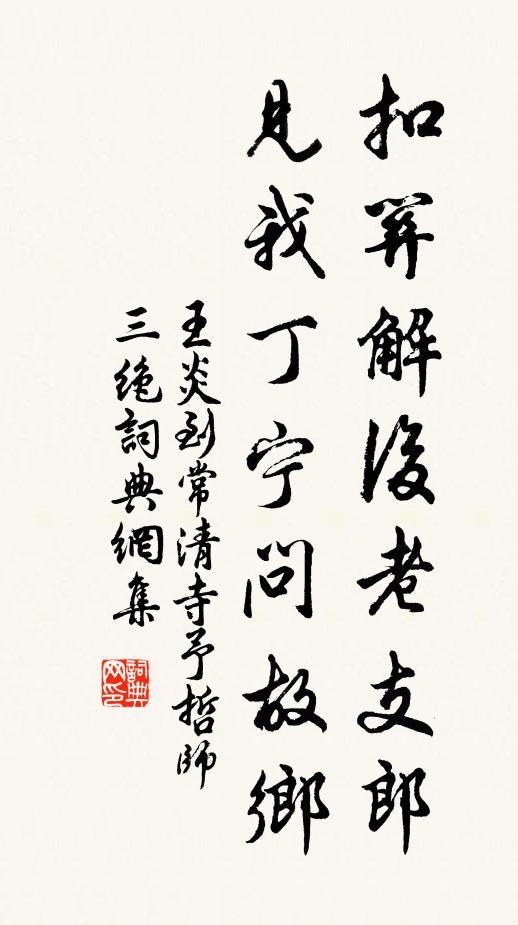 扣關解後老支郎
見我丁宁問故鄉
王炎到常清寺予哲師
三絶詞典網集
詞典
网印